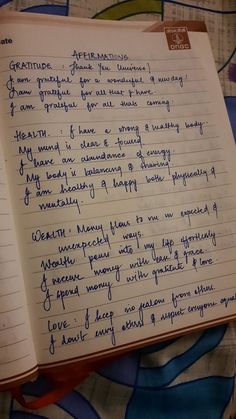 ate
ongc
AFFIRMATIONS
GRATITUDE : Thank You Universe!
I am grateful for a wonderful & new day!
I am grateful for all that I have.
I am grateful for all thats coming.
HEALTH : I have a strong & healthy body.
My mind is clear & focused.
I have an abundance of energy.
My body is balancing & thriving
I am healthy & happy both physically &
mentally.
WEALTH : Money flows to me in expected &
unexpected ways.
Wealth pours into my life effortlessly
I receive money with ease & grace.
I spend money with gratitude & love
LOVE : I keep no jealousy from others.
I don't envy others & respect everyone equal